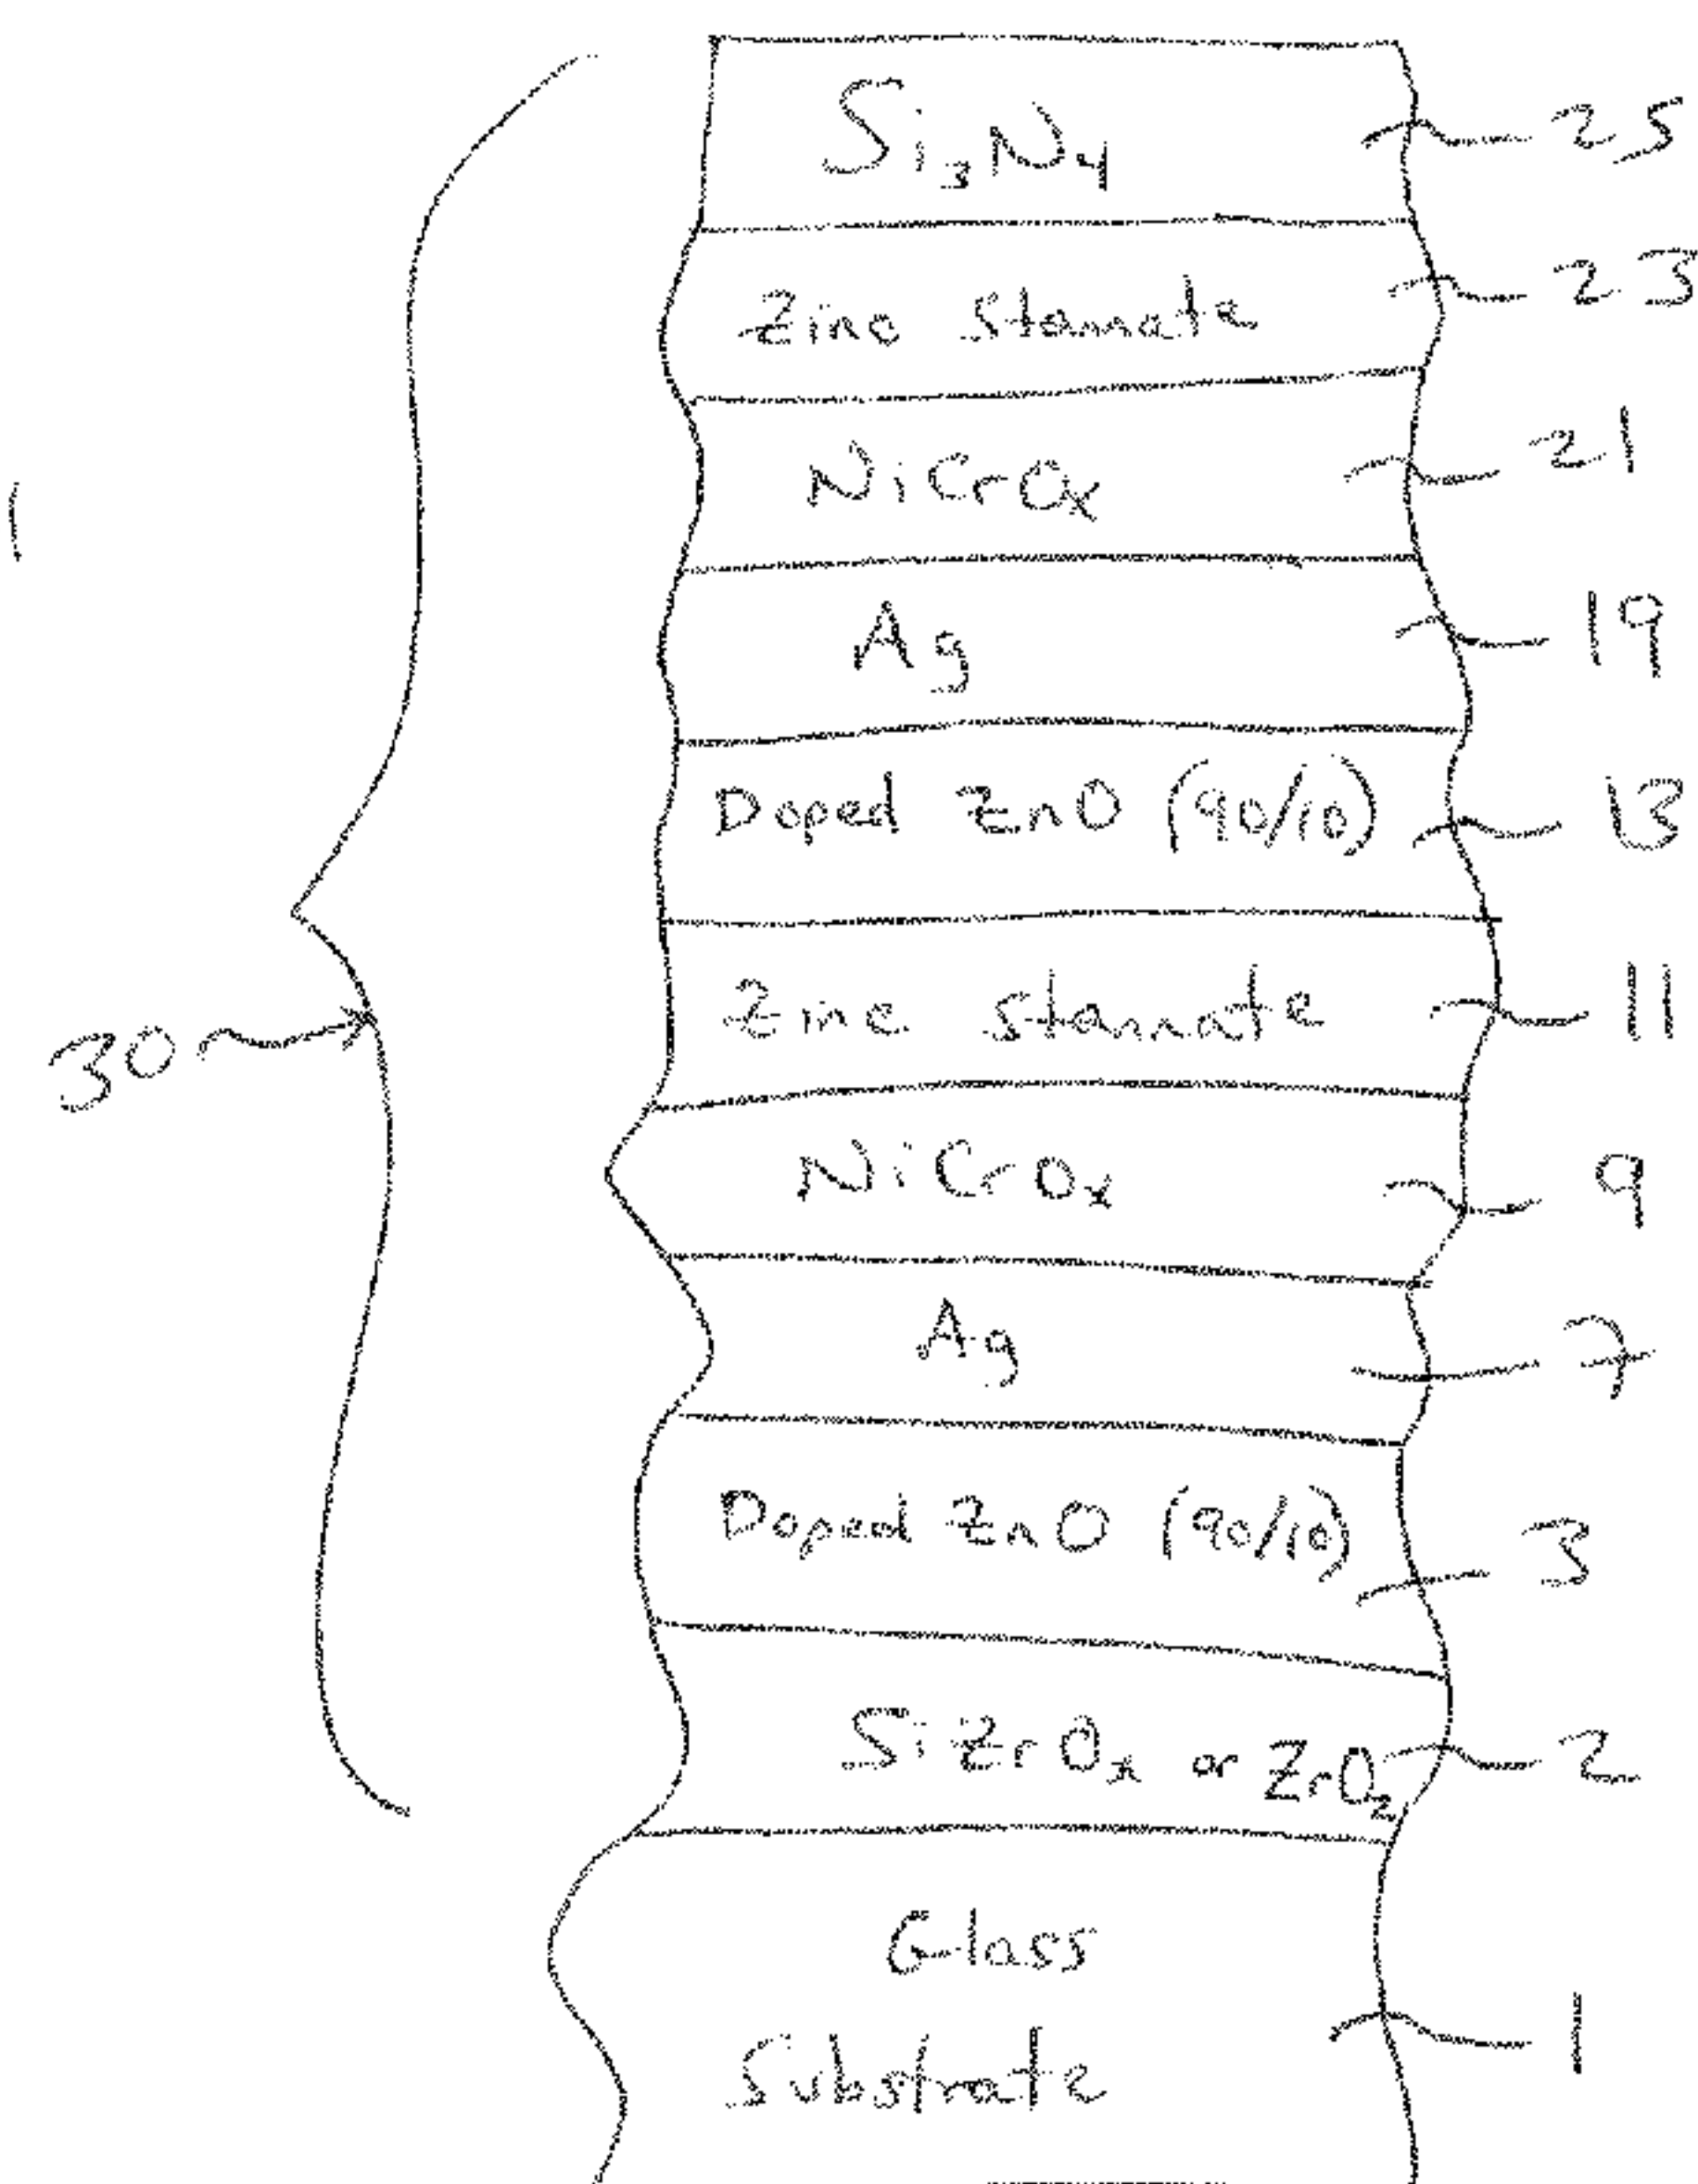 Si₃N₄ 25
Zinc Stannate 23
NiCrOx 21
1
Ag 19
Doped ZnO (90/10) 13
Zinc Stannate 11
30
NiCrOx 9
Ag 7
Doped ZnO (90/10) 3
SiZrOx or ZrO₂ 2
Glass
Substrate 1